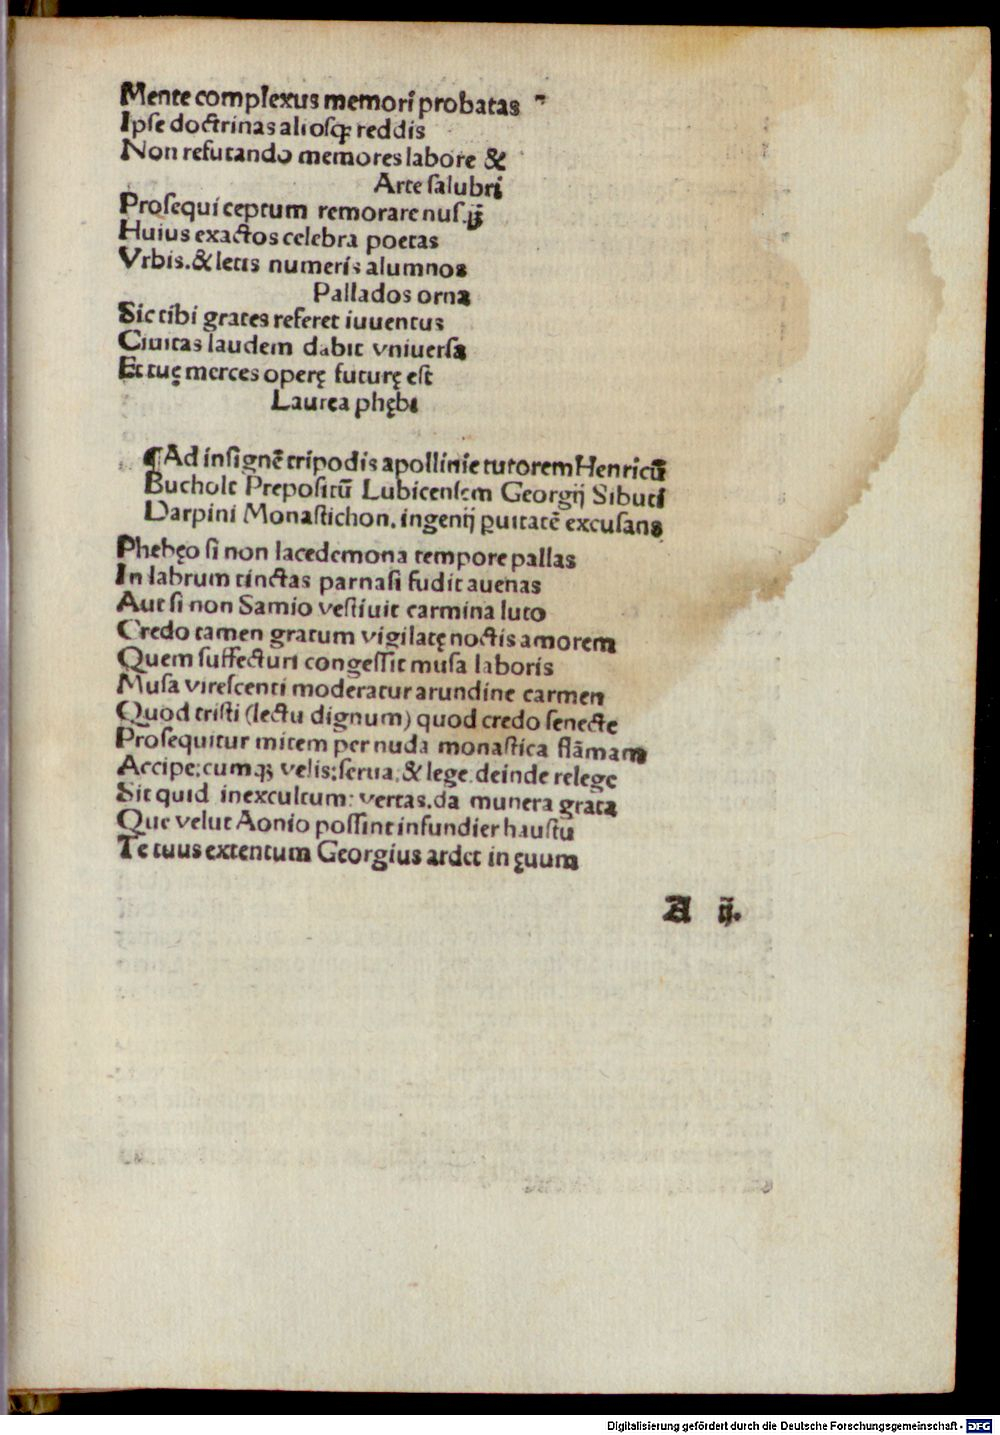 Mente complexus memori probatas
Ipse doctrinas aliosqꝫ reddis
Non refutando memores labore &
Arte salubri
Prosequi ceptum remorare nus.ꝙ̄
Huius exactos celebra poetas
Vrbis.& letis numeris alumnos
Pallados orna
Sic tibi grates referet iuuentus
Ciuitas laudem dabit vniuersa
Et tuę merces operę futurę est
Laurea phębi
¶Ad insignē tripodis apollinie tutorem Henricū
Bucholt Prepositū Lubicensem Georgij Sibuti
Darpini Monastichon. ingenij ꝑuitatē excusans
Phebęo si non lacedemona tempore pallas
In labrum tinctas parnasi fudit auenas
Aut si non Samio vestiuit carmina luto
Credo tamen gratum vigilatę noctis amorem
Quem suffecturi congessit musa laboris
Musa virescenti moderatur arundine carmen
Quod tristi (lectu dignum) quod credo senecte
Prosequitur mitem per nuda monastica flāmam
Accipe:cumqꝫ velis:serua:& lege.deinde relege
Sit quid inexcultum: vertas.da munera grata
Que velut Aonio possint infundier haustu
Te tuus extentum Georgius ardet in ęuum
A ij.
Digitalisierung gefördert durch die Deutsche Forschungsgemeinschaft - DFG